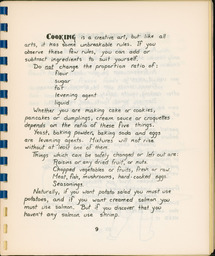 COOKING is a creative art, but like all
arts, it has some unbreakable rules. If you
observe these few rules, you can add or
subtract ingredients to suit yourself.
Do not change the proportion ratio of:
flour
sugar
fat
levening agent
liquid
Whether you are making cake or cookies,
pancakes or dumplings, cream sauce or croquettes
depends on the ratio of these five things.
Yeast, baking powder, baking soda and eggs
are levening agents. Mixtures will not rise
without at least one of them.
Things which can be safely changed or left out are:
Raisins or any dried fruit, or nuts.
Chopped vegetables or fruits, fresh or raw.
Meat, fish, mushrooms, hard-cooked eggs.
Seasonings.
Naturally, if you want potato salad you must use
potatoes, and if you want creamed salmon you
must use salmon. But if you discover that you
haven't any salmon, use shrimp.
9